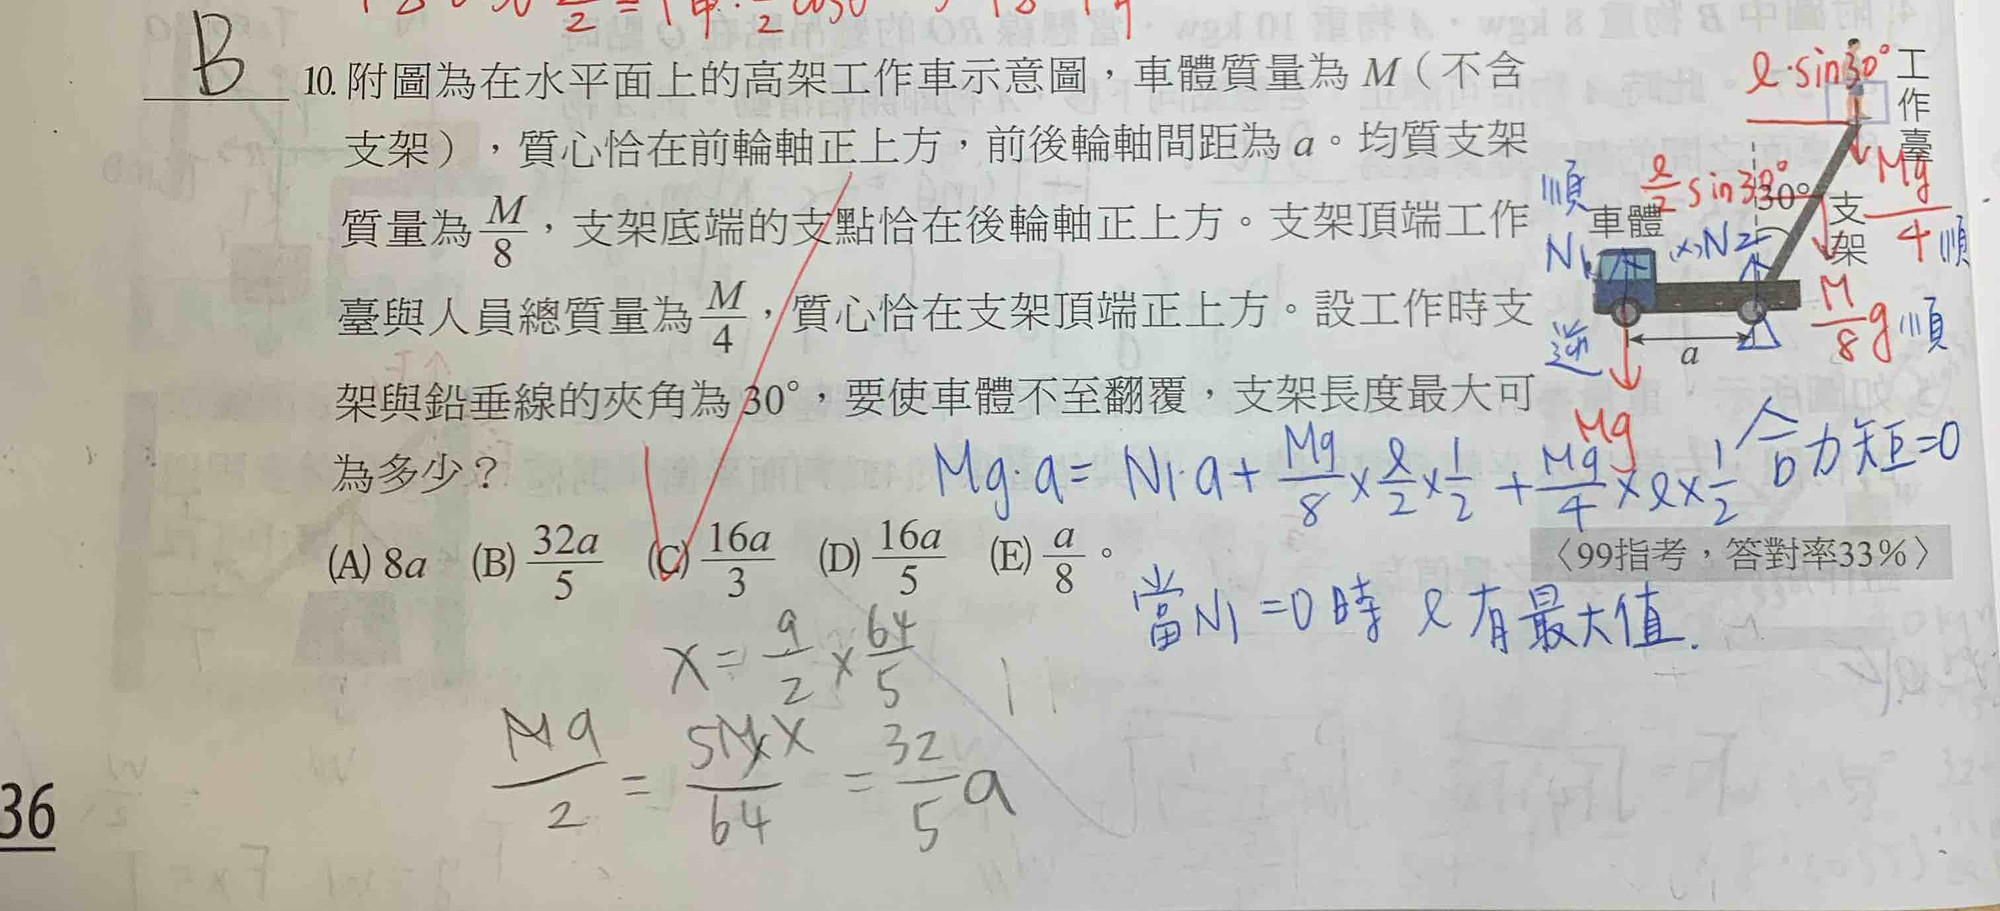 B
10. 附圖為在水平面上的高架工作車示意圖，車體質量為 M（不含
支架），質心恰在前輪軸正上方，前後輪軸間距為 a。均質支架
質量為 M/8，支架底端的支點恰在後輪軸正上方。支架頂端工作
臺與人員總質量為 M/4，質心恰在支架頂端正上方。設工作時支
架與鉛垂線的夾角為 30°，要使車體不至翻覆，支架長度最大可
為多少？
(A) 8a (B) 32a/5 (C) 16a/3 (D) 16a/5 (E) a/8。
〈99指考，答對率33%〉
ℓ·sin30°
工作臺
Mg/4 順
ℓ/2 sin30°
30°
支架
順
車體
N1
N2
M/8 g 順
逆
a
Mg
Mg·a = N1·a + Mg/8 × ℓ/2 × 1/2 + Mg/4 × ℓ × 1/2
合力矩=0
當N1=0時 ℓ有最大值.
x = a/2 × 64/5
Ma/2 = 5Mx/64 = 32/5 a
36